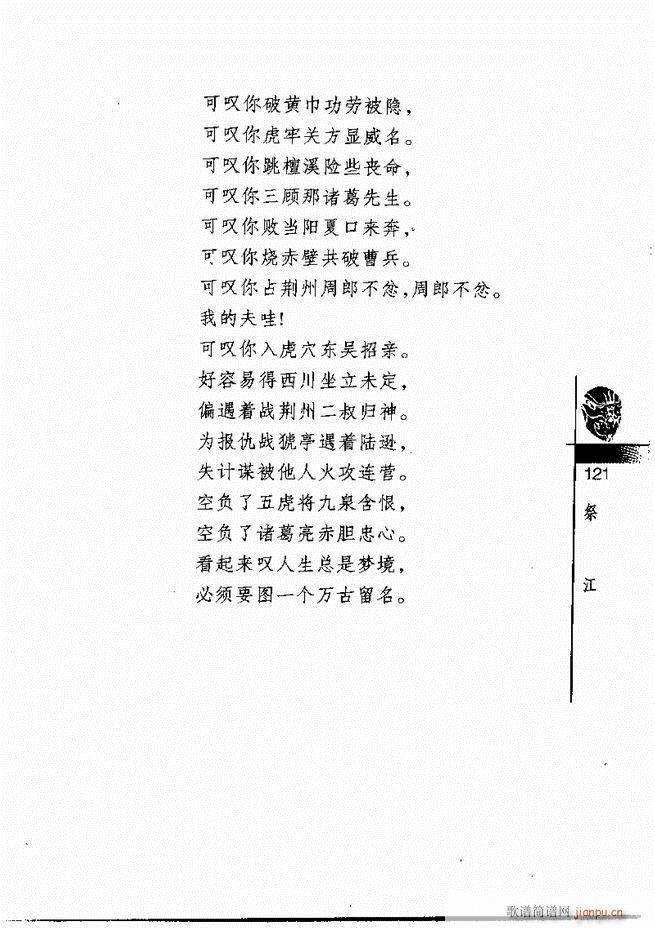 可叹你破黄巾功劳被隐，
可叹你虎牢关方显威名。
可叹你跳檀溪险些丧命，
可叹你三顾那诸葛先生。
可叹你败当阳夏口来奔，
可叹你烧赤壁共破曹兵。
可叹你占荆州周郎不忿，周郎不忿。
我的夫哇！
可叹你入虎穴东吴招亲。
好容易得西川坐立未定，
偏遇着战荆州二叔归神。
为报仇战猇亭遇着陆逊，
失计谋被他人火攻连营。
空负了五虎将九泉含恨，
空负了诸葛亮赤胆忠心。
看起来叹人生总是梦境，
必须要图一个万古留名。
121
祭江
歌谱简谱网 jianpu.cn